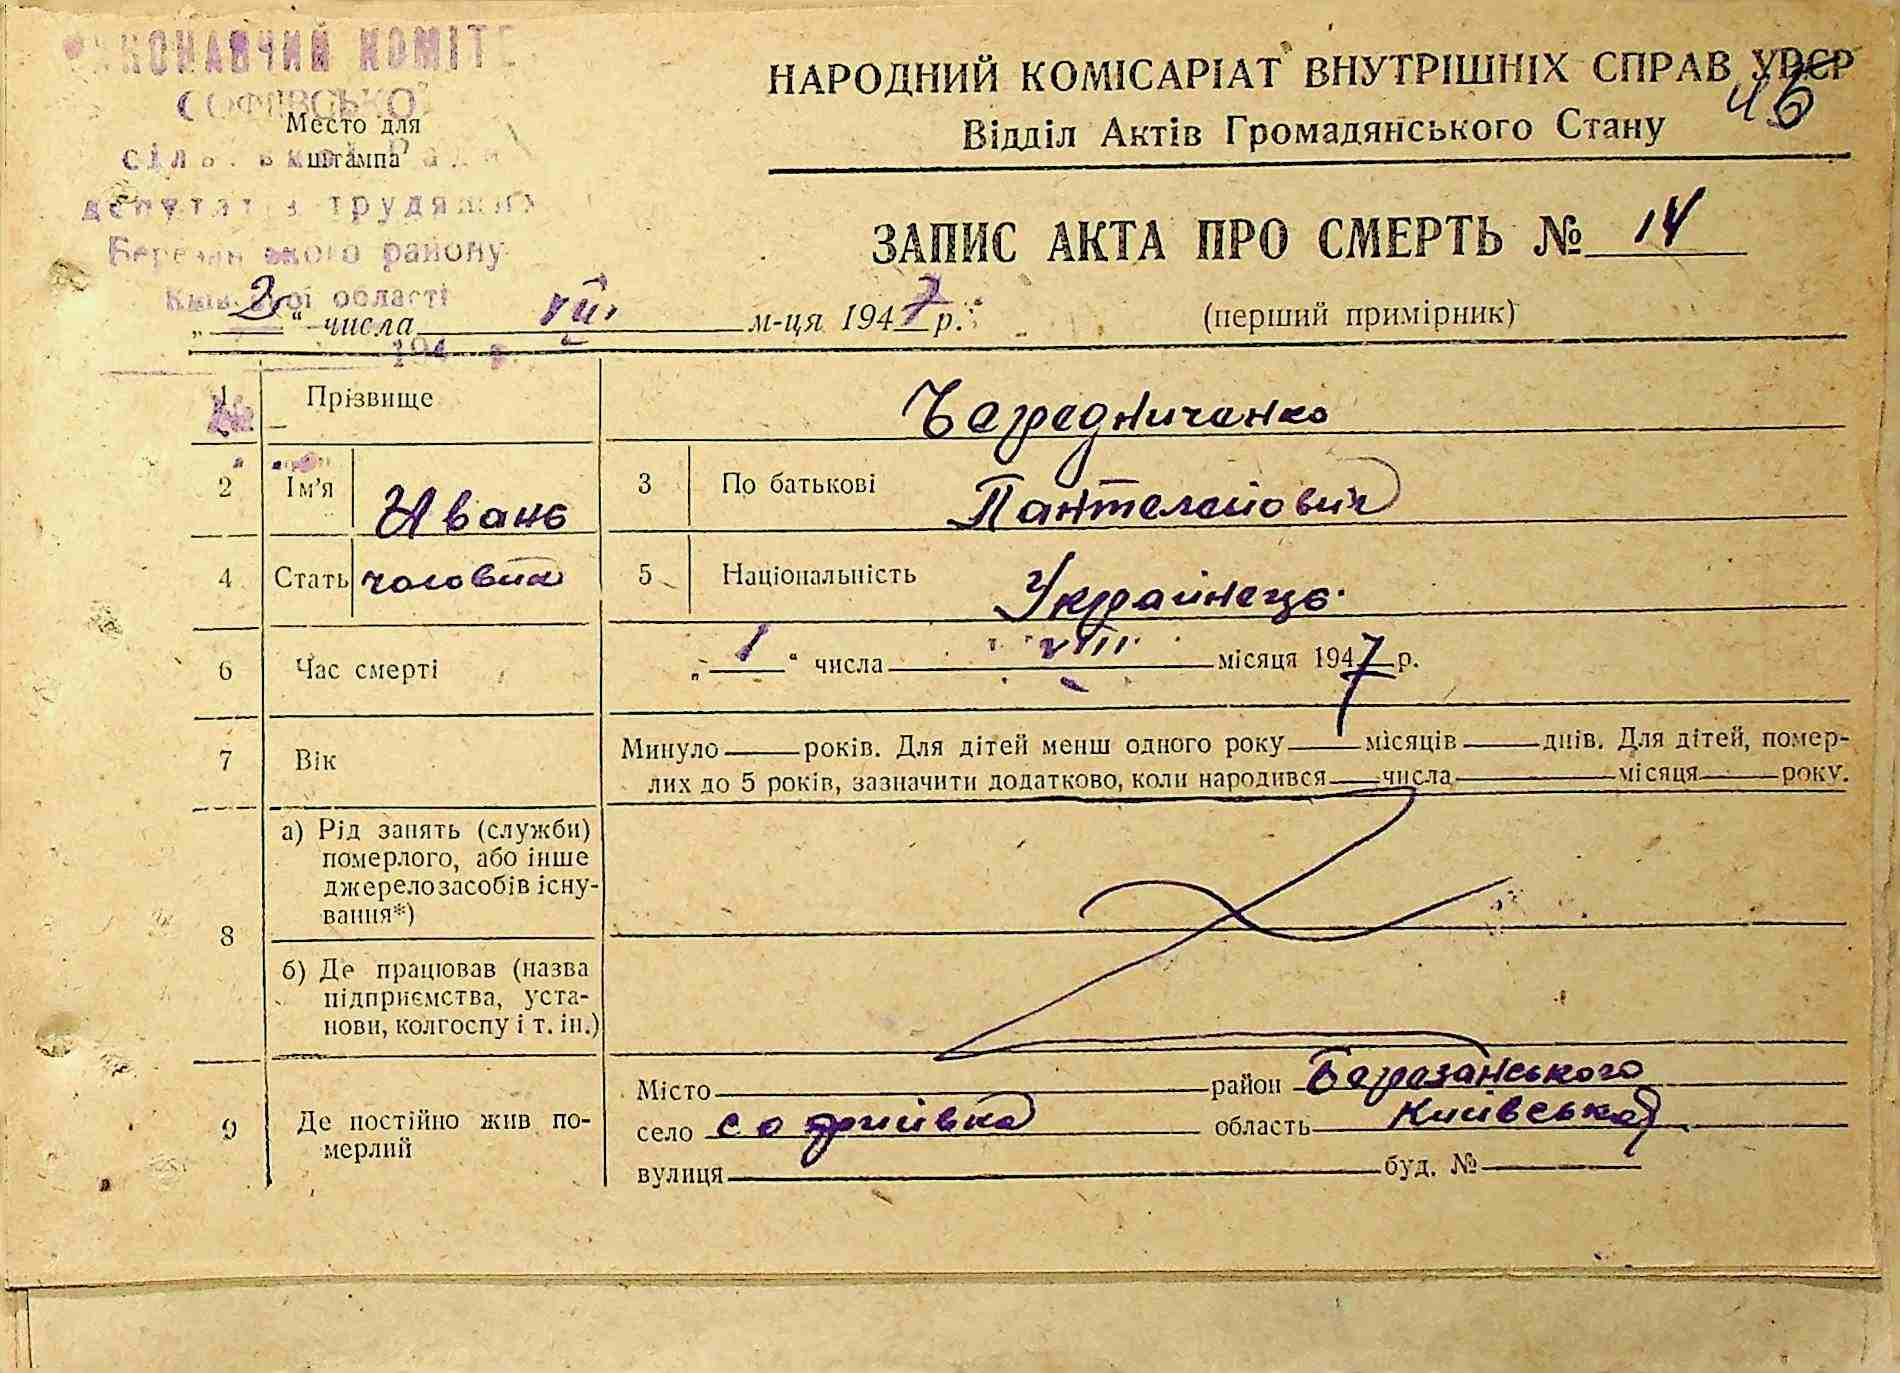 КОНАВЧИЙ КОМІТЕ
СОФІЇВСЬКОЇ
Место для
штампа
депутатів трудящих
району
області
НАРОДНИЙ КОМІСАРІАТ ВНУТРІШНІХ СПРАВ УРСР
Відділ Актів Громадянського Стану
ЗАПИС АКТА ПРО СМЕРТЬ № 14
„2“ числа VIII м-ця 1947 р.
(перший примірник)
194 р.
1 Прізвище Бередниченко
2 Ім’я Иванє 3 По батькові Пантелейович
4 Стать чоловича 5 Національність Украйнець.
6 Час смерті „1“ числа VIII місяця 1947 р.
7 Вік Минуло років. Для дітей менш одного року місяців днів. Для дітей, помер-
лих до 5 років, зазначити додатково, коли народився числа місяця року.
8 а) Рід занять (служби)
померлого, або інше
джерело засобів існу-
вання*)
б) Де працював (назва
підприємства, уста-
нови, колгоспу і т. ін.)
9 Де постійно жив по-
мерлий
Місто район Березанського
село софиівка область Киівська
вулиця буд. №